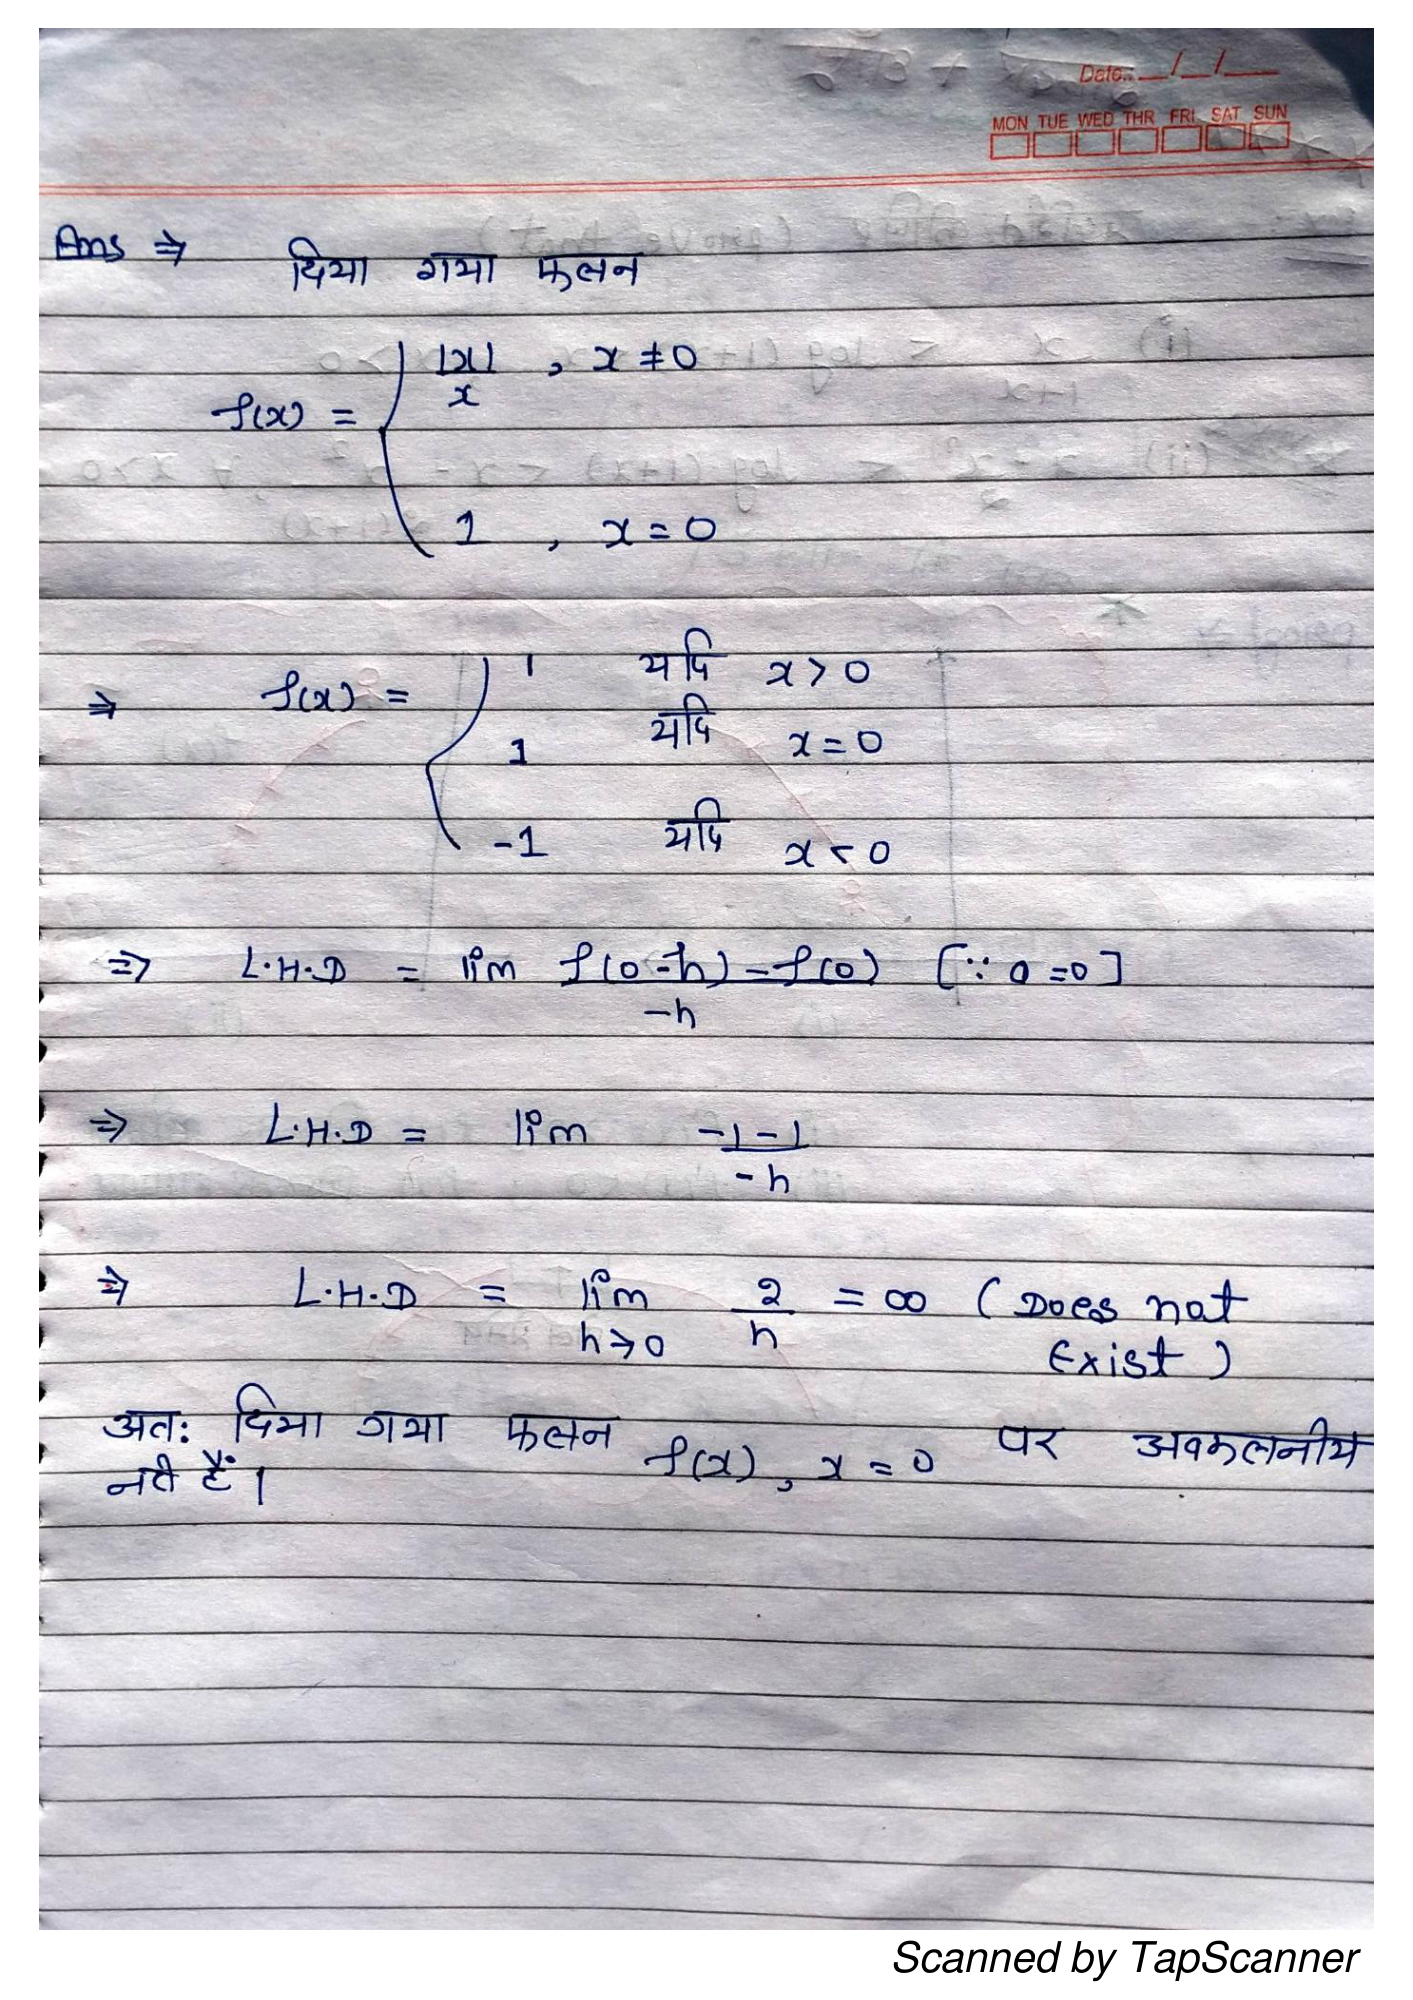 Date:. __/__/__
MON TUE WED THR FRI SAT SUN
Ans ⇒ दिया गया फलन
f(x) = { |x|/x , x ≠ 0
1 , x = 0
⇒ f(x) = { 1 यदि x > 0
1 यदि x = 0
-1 यदि x < 0
⇒ L.H.D = lim f(0-h) - f(0) / -h [∵ a = 0]
⇒ L.H.D = lim -1-1 / -h
⇒ L.H.D = lim h→0 2/h = ∞ (Does not
Exist)
अतः दिया गया फलन f(x), x = 0 पर अवकलनीय
नही हैं।
Scanned by TapScanner